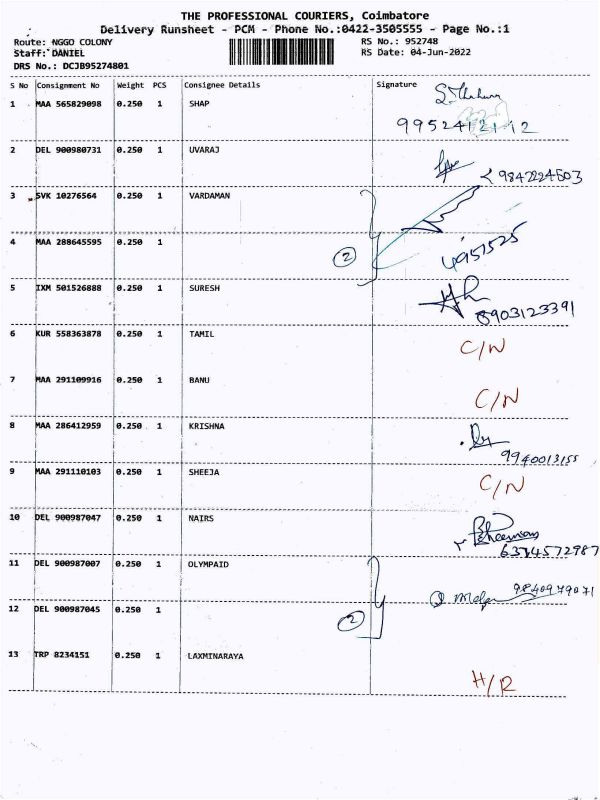 THE PROFESSIONAL COURIERS, Coimbatore
Delivery Runsheet - PCM - Phone No.:0422-3505555 - Page No.:1
Route: NGGO COLONY RS No.: 952748
Staff: DANIEL RS Date: 04-Jun-2022
DRS No.: DCJB95274801
S No Consignment No Weight PCS Consignee Details Signature
1 MAA 565829098 0.250 1 SHAP
9952412112
2 DEL 900980731 0.250 1 UVARAJ
9842224503
3 SVK 10276564 0.250 1 VARDAMAN
4 MAA 288645595 0.250 1
2
4951525
5 IXM 501526888 0.250 1 SURESH
8903123391
6 KUR 558363878 0.250 1 TAMIL
C/N
7 MAA 291109916 0.250 1 BANU
C/N
8 MAA 286412959 0.250 1 KRISHNA
9940013155
9 MAA 291110103 0.250 1 SHEEJA
C/N
10 DEL 900987047 0.250 1 NAIRS
6374572987
11 DEL 900987007 0.250 1 OLYMPAID
9840979071
12 DEL 900987045 0.250 1
2
13 TRP 8234151 0.250 1 LAXMINARAYA
H/R